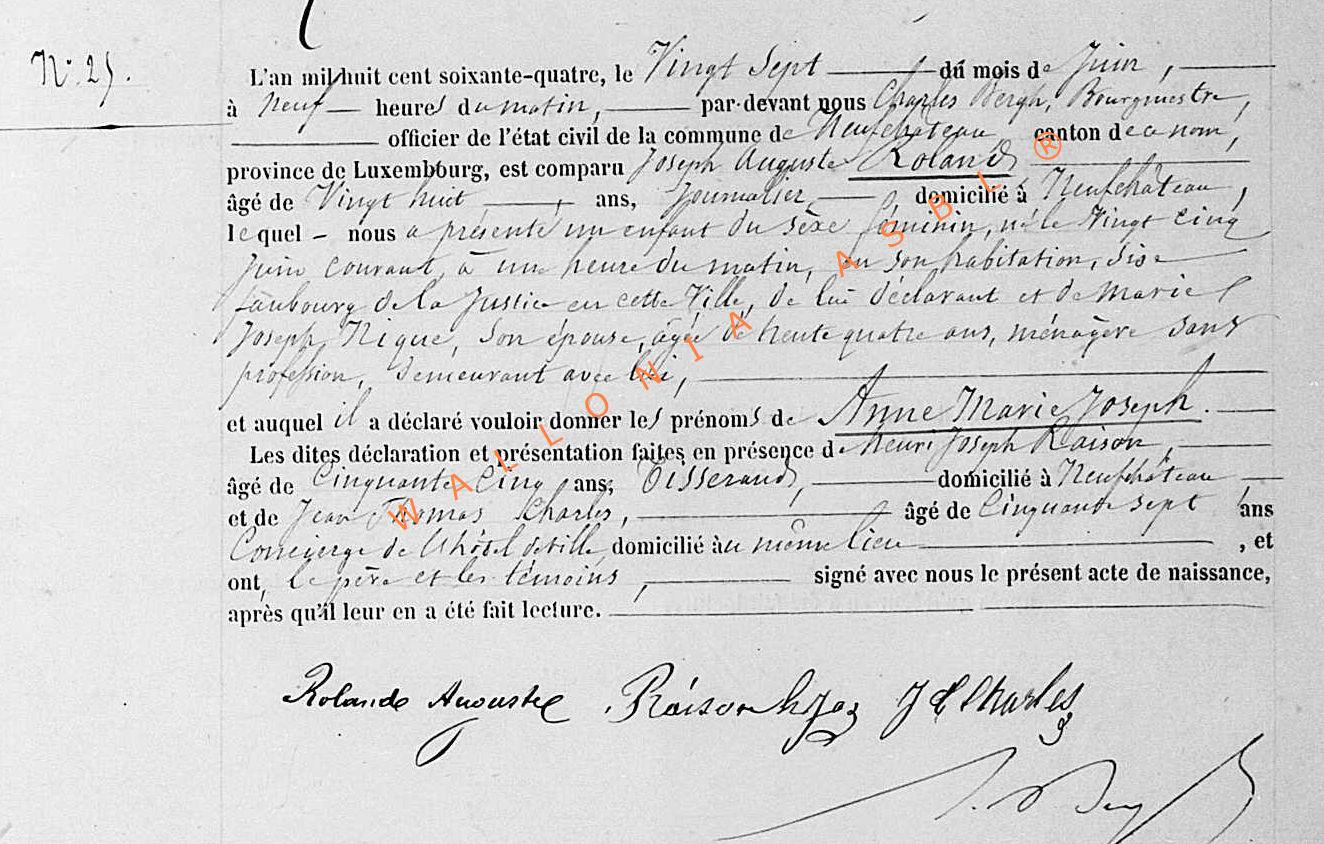 N° 25.
L'an mil huit cent soixante-quatre, le Vingt Sept du mois de Juin,
à Neuf heures du matin, par-devant nous Charles Bergh, Bourgmestre,
officier de l'état civil de la commune de Neufchâteau canton de ce nom,
province de Luxembourg, est comparu Joseph Auguste Roland
âgé de Vingt huit, ans, Journalier, domicilié à Neufchâteau,
lequel – nous a présenté un enfant du sexe féminin, né le Vingt cinq
Juin courant, à une heure du matin, en son habitation, sise
faubourg de la Justice en cette Ville, de lui déclarant et de Marie
Joseph, son épouse, âgée de trente quatre ans, ménagère sans
profession, demeurant avec lui,
et auquel il a déclaré vouloir donner les prénoms de Anne Marie Joseph.
Les dites déclaration et présentation faites en présence de Henri Joseph Raison,
âgé de Cinquante Cinq ans, Tisserand, domicilié à Neufchâteau
et de Jean Thomas Charles, âgé de Cinquante sept ans
Concierge de l'hôtel de ville, domicilié au même lieu, et
ont, le père et les témoins, signé avec nous le présent acte de naissance,
après qu'il leur en a été fait lecture.
Rolande Auguste Raison hjos J T Charles
WALLONIA ASBL ®